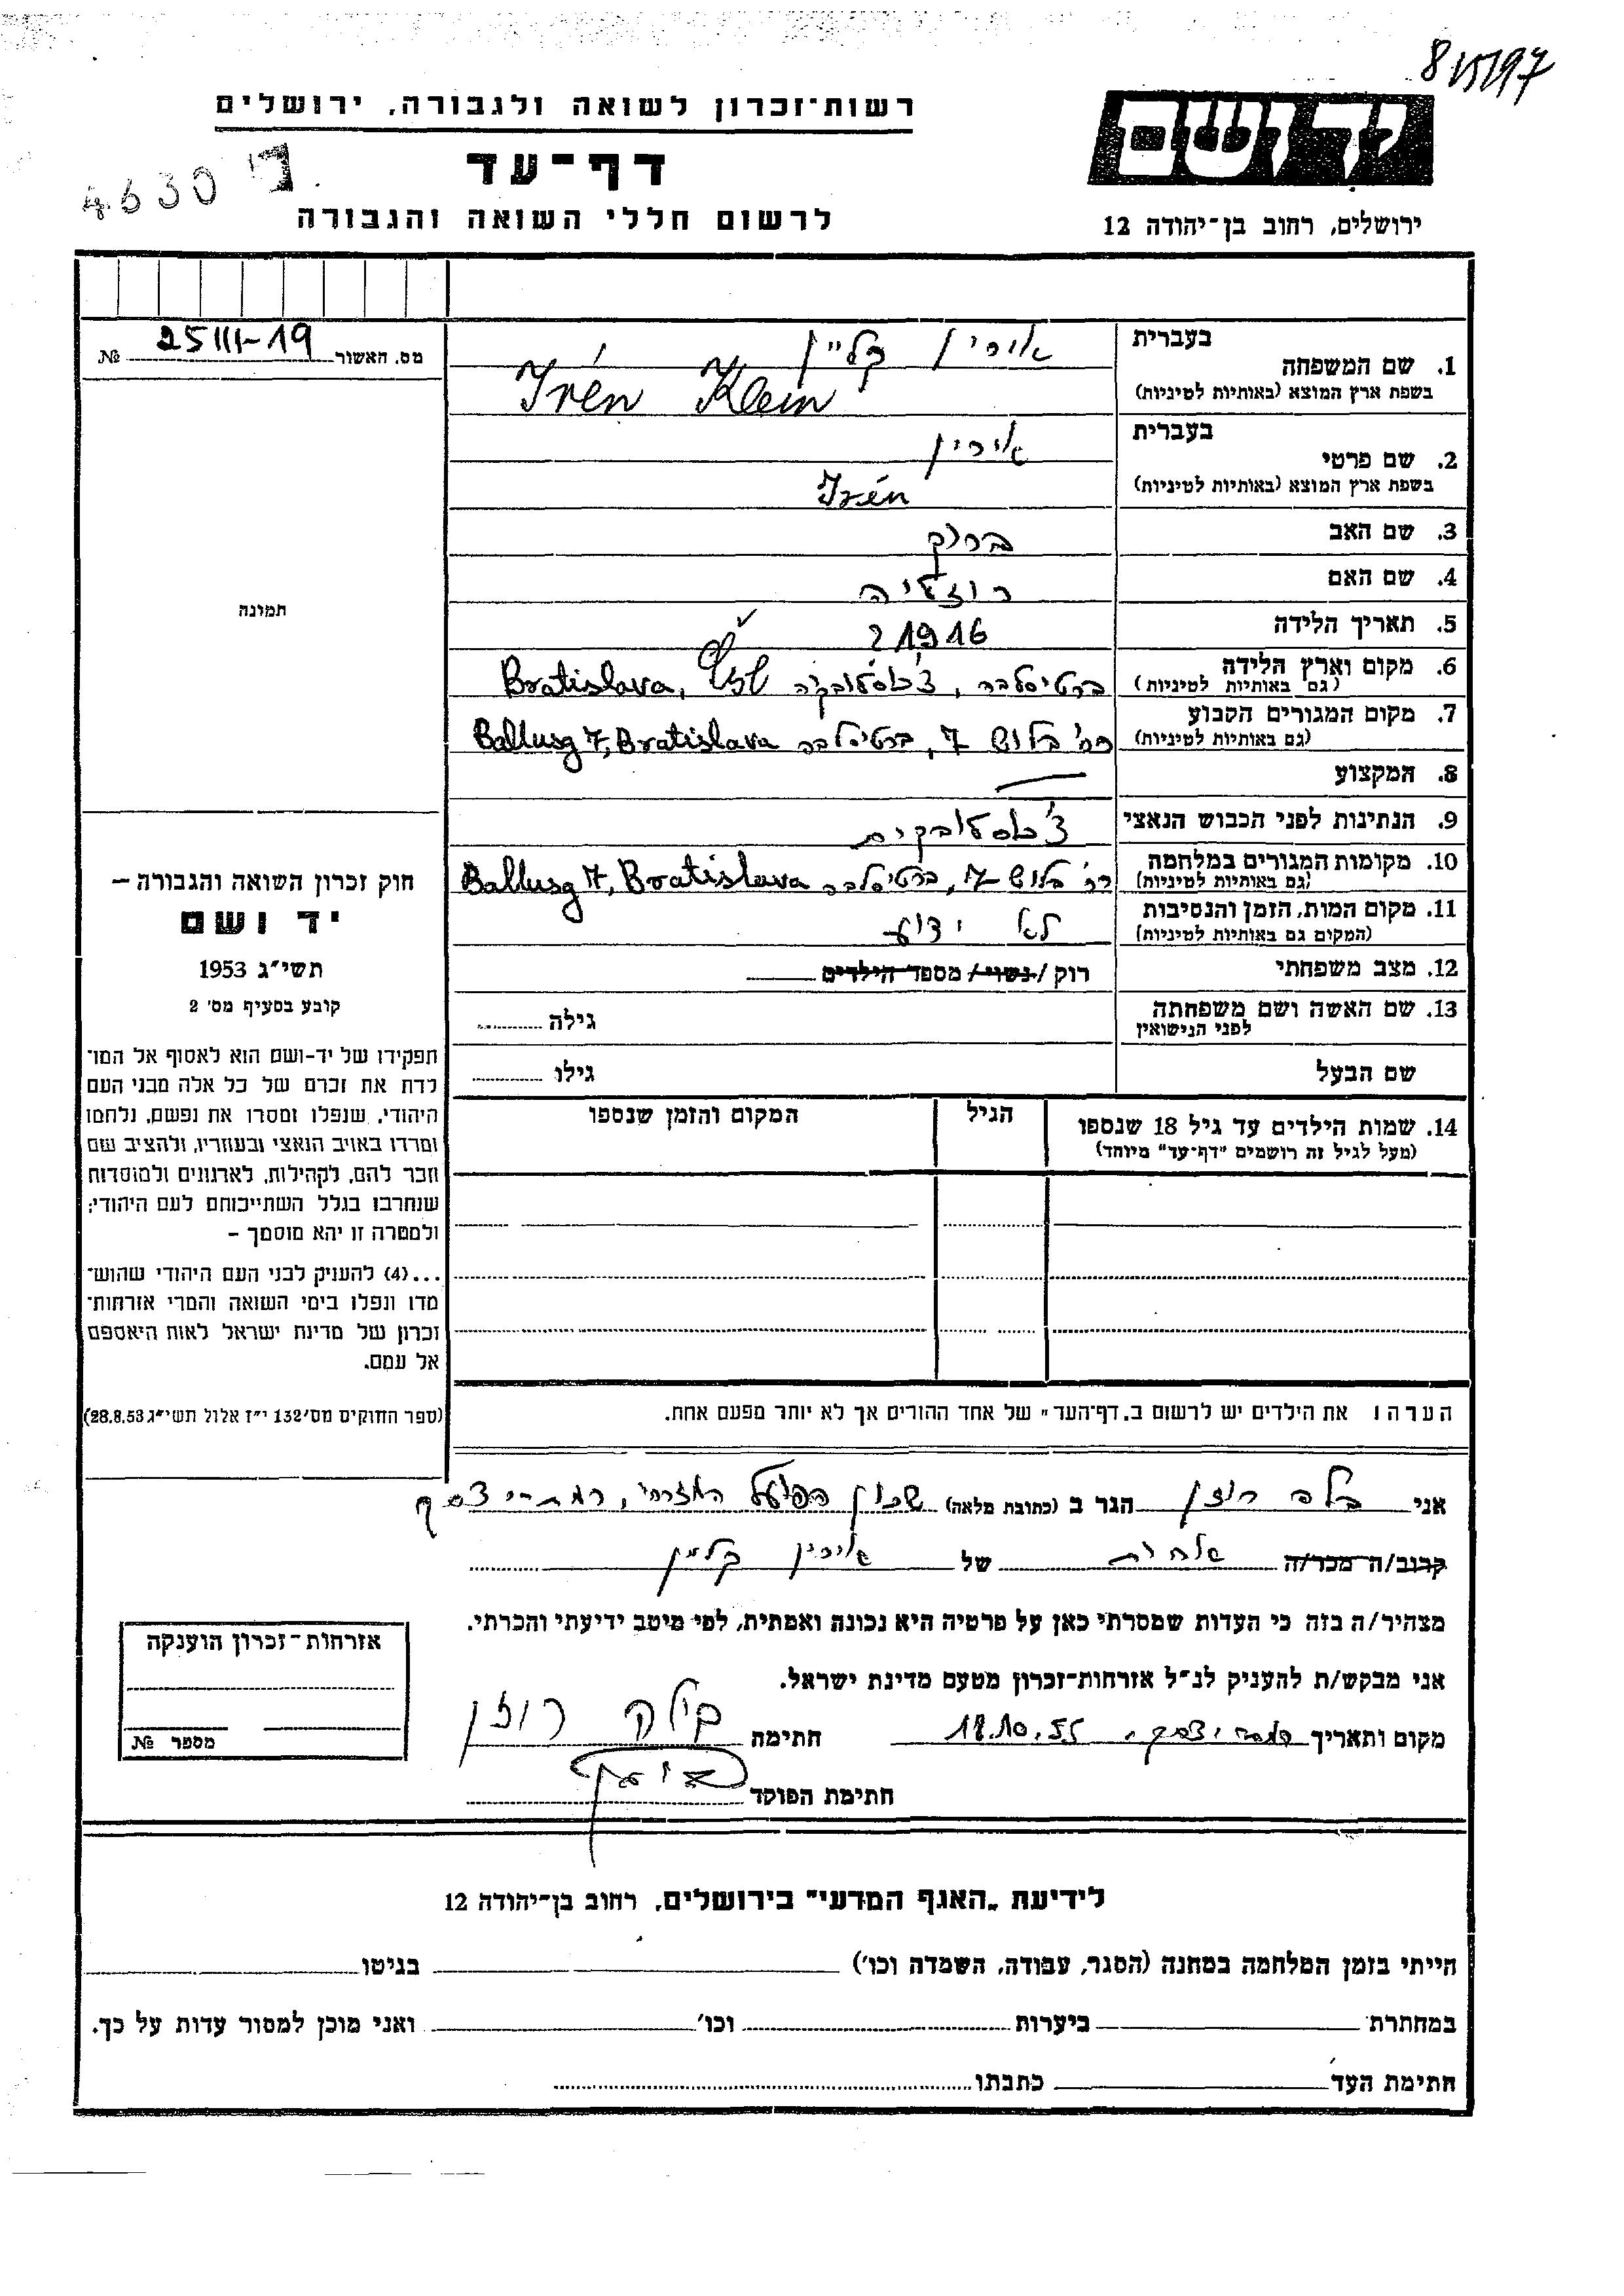 רשות־זכרון לשואה ולגבורה, ירושלים
יד ושם
דף־עד
4630
לרשום חללי השואה והגבורה
ירושלים, רחוב בן־יהודה 12
מס. האשור 25III-19 №
בעברית אירין קליין
1. שם המשפחה
בשפת ארץ המוצא (באותיות לטיניות) Irén Klein
בעברית אירין
2. שם פרטי
בשפת ארץ המוצא (באותיות לטיניות) Irén
3. שם האב
4. שם האם רוזליה
5. תאריך הלידה 1916 ?
6. מקום וארץ הלידה ברטיסלבה, צ'כוסלובקיה Bratislava,
(גם באותיות לטיניות)
7. מקום המגורים הקבוע רח' בלוש 7, ברטיסלבה Ballusg 7, Bratislava
(גם באותיות לטיניות)
8. המקצוע
9. הנתינות לפני הכבוש הנאצי
10. מקומות המגורים במלחמה רח' בלוש 7, ברטיסלבה Ballusg 7, Bratislava
(גם באותיות לטיניות)
11. מקום המות, הזמן והנסיבות לא ידוע
(המקום גם באותיות לטיניות)
12. מצב משפחתי רוק / נשוי / מספר הילדים
13. שם האשה ושם משפחתה גילה
לפני הנישואין
שם הבעל גילו
14. שמות הילדים עד גיל 18 שנספו הגיל המקום והזמן שנספו
(מעל לגיל זה רושמים "דף־עד" מיוחד)
תמונה
חוק זכרון השואה והגבורה –
יד ושם
תשי"ג 1953
קובע בסעיף מס' 2
תפקידו של יד-ושם הוא לאסוף אל המו־
לדת את זכרם של כל אלה מבני העם
היהודי, שנפלו ומסרו את נפשם, נלחמו
ומרדו באויב הנאצי ובעוזריו, ולהציב שם
וזכר להם, לקהילות, לארגונים ולמוסדות
שנחרבו בגלל השתייכותם לעם היהודי;
ולמטרה זו יהא מוסמך –
...(4) להעניק לבני העם היהודי שהוש־
מדו ונפלו בימי השואה והמרי אזרחות־
זכרון של מדינת ישראל לאות היאספם
אל עמם.
(ספר החוקים מס' 132 י"ז אלול תשי"ג 28.8.53)
הערה ! את הילדים יש לרשום ב„דף־העד" של אחד ההורים אך לא יותר מפעם אחת.
אני רוזן הגר ב (כתובת מלאה) שכון הפועל המזרחי,
קרוב/ה מכר/ה אחות של אירין קליין
מצהיר/ה בזה כי העדות שמסרתי כאן על פרטיה היא נכונה ואמתית, לפי מיטב ידיעתי והכרתי.
אני מבקש/ת להעניק לנ"ל אזרחות־זכרון מטעם מדינת ישראל.
מקום ותאריך 18.10.55 חתימה רוזן
חתימת הפוקד
אזרחות־זכרון הוענקה
מספר №
לידיעת „האגף המדעי" בירושלים, רחוב בן־יהודה 12
הייתי בזמן המלחמה במחנה (הסגר, עבודה, השמדה וכו') בגיטו
במחתרת ביערות וכו' ואני מוכן למסור עדות על כך.
חתימת העד כתבתו